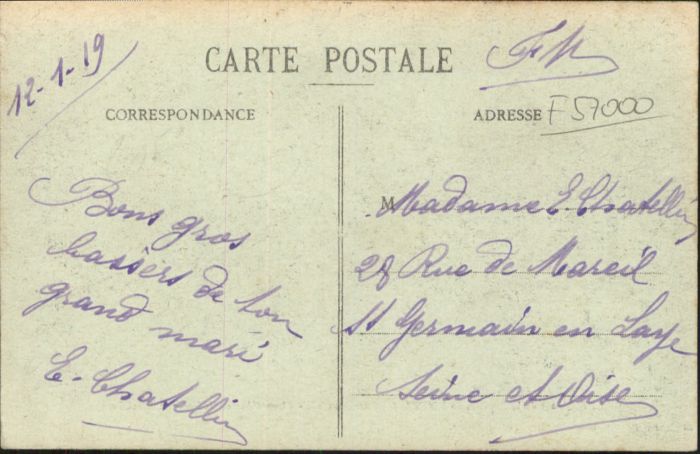 12-1-19
CARTE POSTALE
FM
CORRESPONDANCE
Bons gros
bassers de ton
grand mari
E. Chatellin
ADRESSE
F 57000
Madame E. Chatellin
28 Rue de Mareil
St Germain en Laye
Seine et Oise